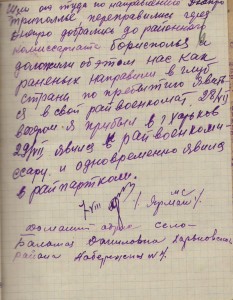 Шли от туда по направлению
Триполье, переправились через
Днепр добрались до районного
комиссариата Борисполь и
доложили об этом нас как
раненых направили в глубь
страны по прибытию явит
ся в свой райвоенкомат. 28/VII
вечером я прибыл в г. Харьков
29/VII явился в райвоенкоми
ссару и одновременно явился
в райпартком.
7/VIII
Домашний адрес село
Даниловка Харьковского
района Набережная №